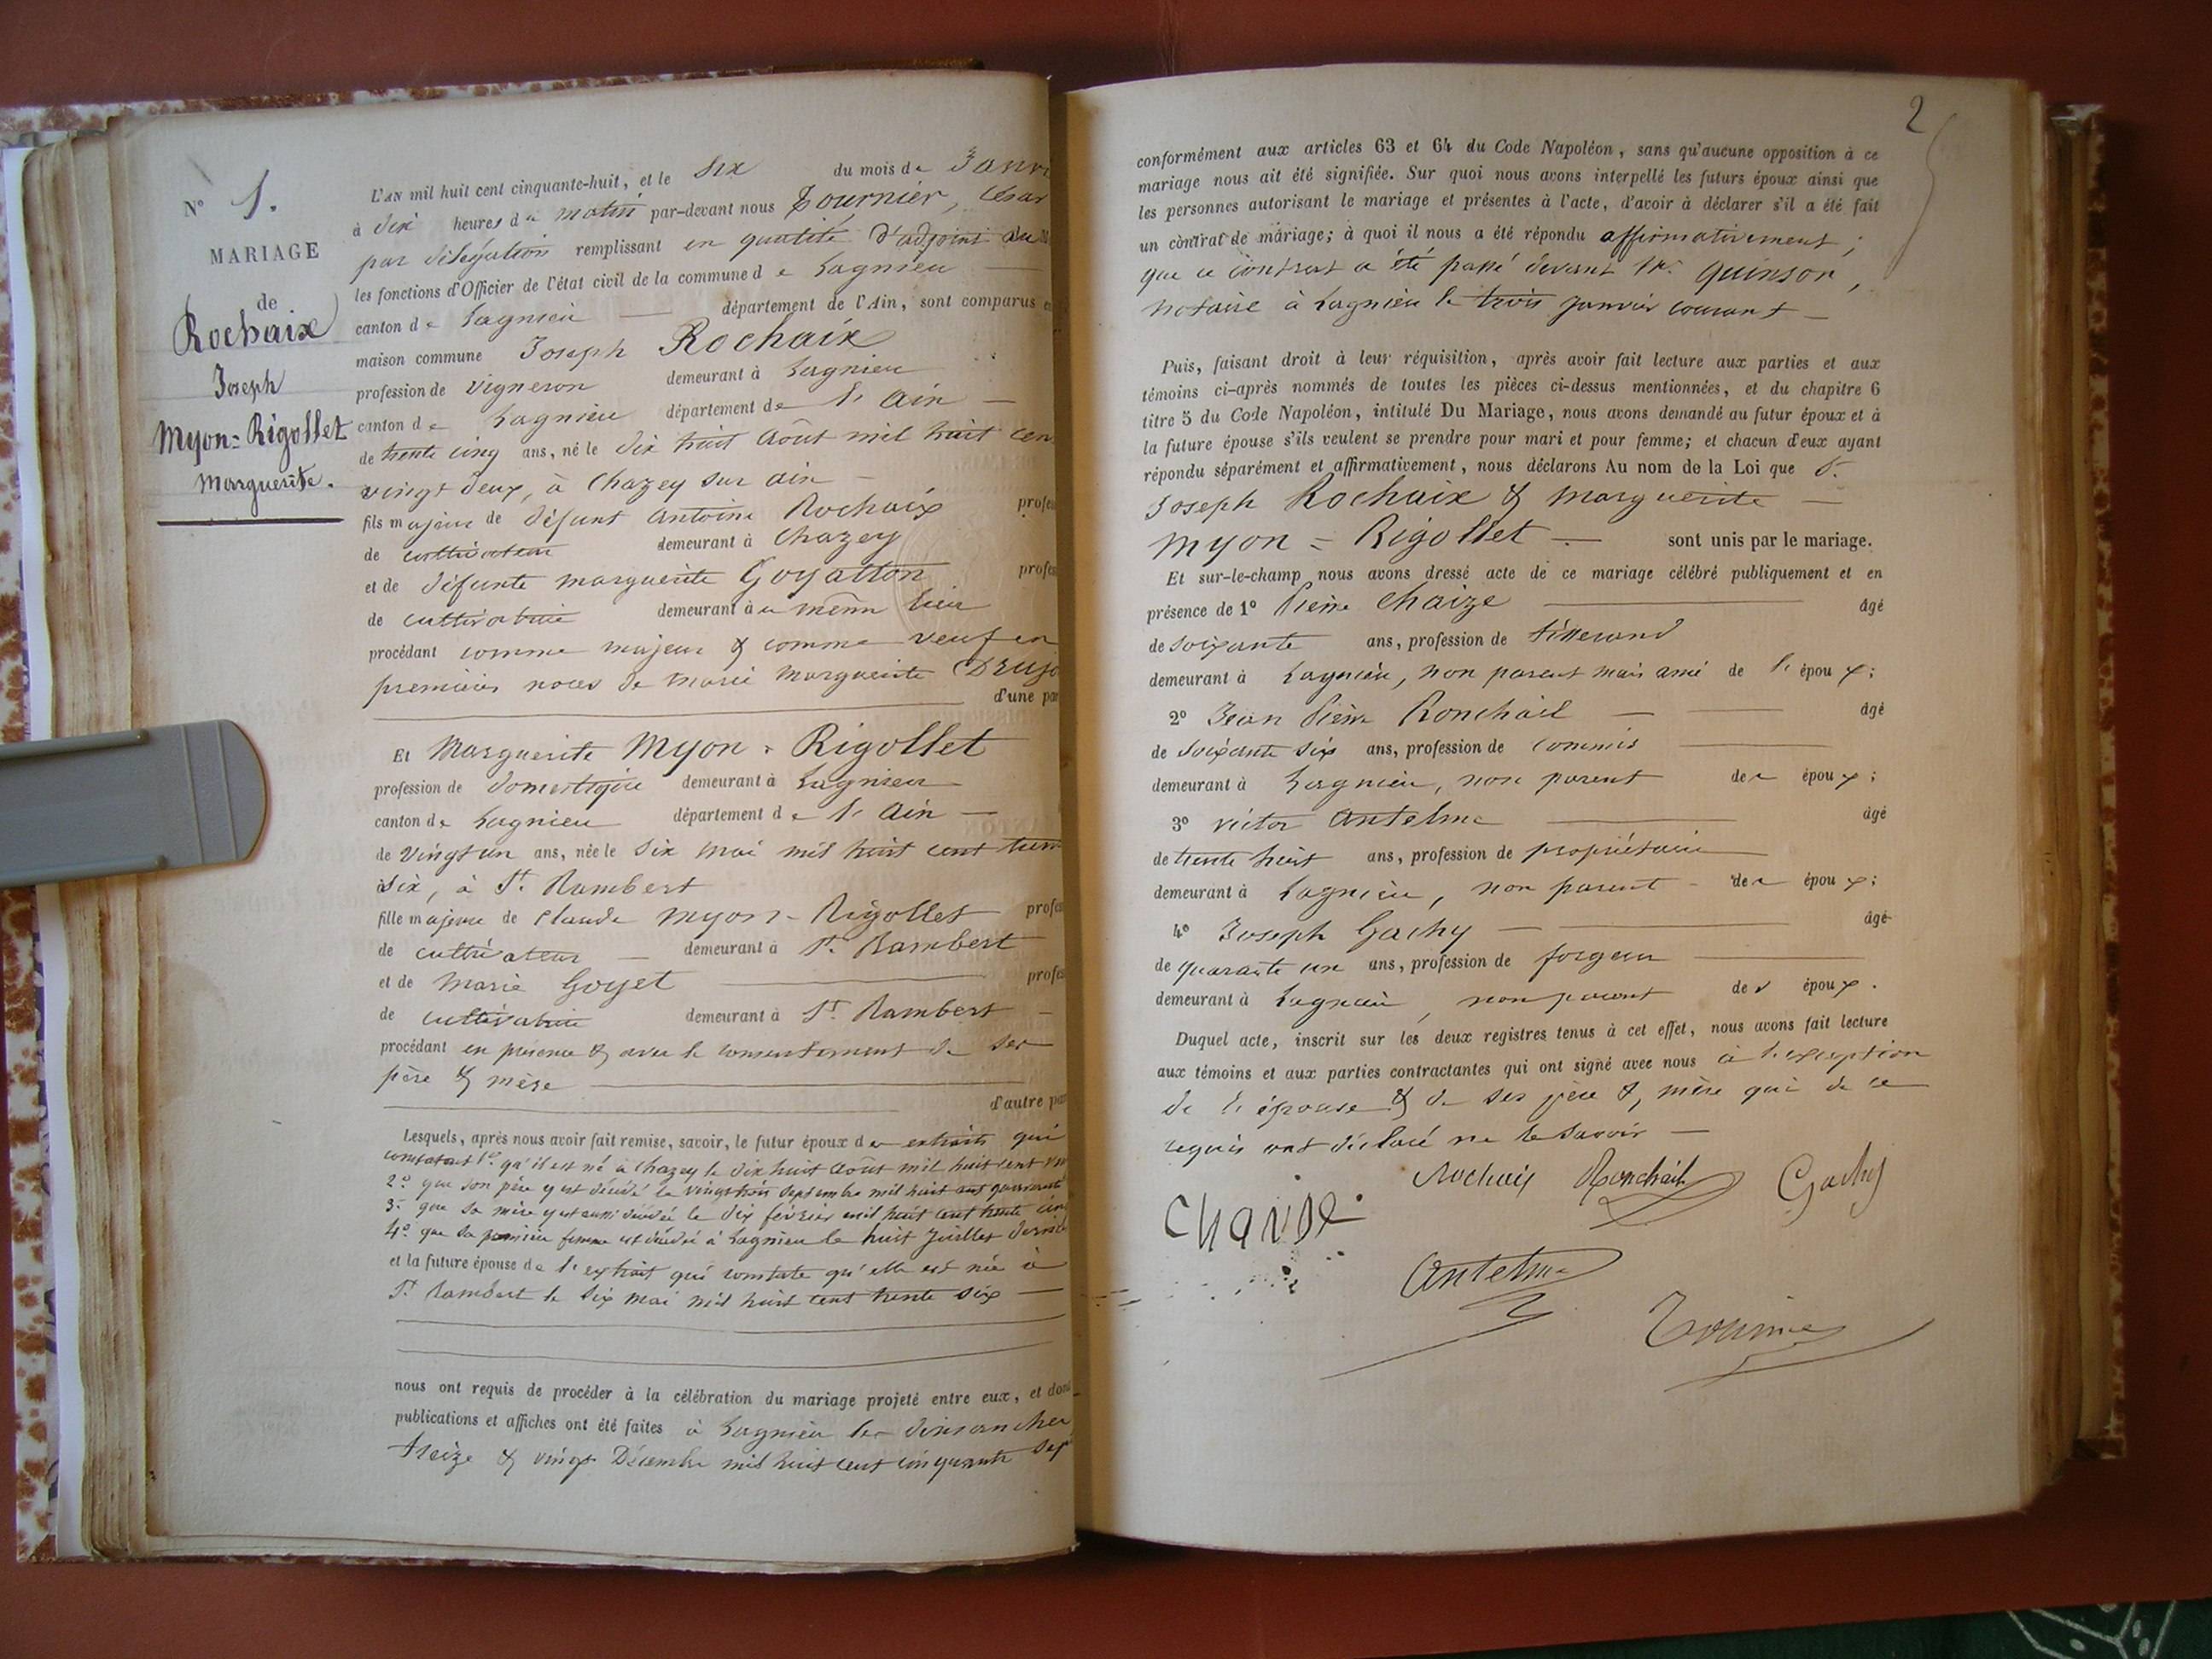 N° 1.
MARIAGE
de
Rochaix
Joseph
Myon=Rigollet
Marguerite.
L'AN mil huit cent cinquante-huit, et le six du mois de Janvi
à dix heures du matin par-devant nous Fournier, César
par délégation remplissant en qualité d'adjoint au
les fonctions d'Officier de l'état civil de la commune de Lagnieu
canton de Lagnieu département de l'Ain, sont comparus en
maison commune Joseph Rochaix
profession de vigneron demeurant à Lagnieu
canton de Lagnieu département de l'Ain
de trente cinq ans, né le dix huit Août mil huit cen
vingt deux, à Chazey sur ain
fils majeur de défunt Antoine Rochaix profes
de cultivateur demeurant à Chazey
et de défunte Marguerite Goyatton profes
de cultivatrice demeurant au même lieu
procédant comme majeur & comme veuf en
premières noces de Marie Marguerite
d'une par
Et Marguerite Myon = Rigollet
profession de domestique demeurant à Lagnieu
canton de Lagnieu département de l'Ain
de vingt un ans, née le six mai mil huit cent trent
six, à St. Rambert
fille majeure de Claude Myon-Rigollet profes
de cultivateur demeurant à St. Rambert
et de Marie Goyet profes
de cultivatrice demeurant à St. Rambert
procédant en présence & avec le consentement de ses
père & mère
d'autre par
Lesquels, après nous avoir fait remise, savoir, le futur époux des extraits qui
constatent 1° qu'il est né à Chazey le dix huit Août mil huit cent vin
2° que son père y est décédé le vingt trois septembre mil huit cent quarante
3° que sa mère y est aussi décédée le dix février mil huit cent trente cin
4° que sa première femme est décédée à Lagnieu le huit Juillet dernie
et la future épouse de l'extrait qui constate qu'elle est née à
St. Rambert le six mai mil huit cent trente six
nous ont requis de procéder à la célébration du mariage projeté entre eux, et dont
publications et affiches ont été faites à Lagnieu les dimanches
treize & vingt Décembre mil huit cent cinquante sept
2
conformément aux articles 63 et 64 du Code Napoléon, sans qu'aucune opposition à ce
mariage nous ait été signifiée. Sur quoi nous avons interpellé les futurs époux ainsi que
les personnes autorisant le mariage et présentes à l'acte, d'avoir à déclarer s'il a été fait
un contrat de mariage; à quoi il nous a été répondu affirmativement;
que ce contrat a été passé devant Me. Quinson,
notaire à Lagnieu le trois Janvier courant
Puis, faisant droit à leur réquisition, après avoir fait lecture aux parties et aux
témoins ci-après nommés de toutes les pièces ci-dessus mentionnées, et du chapitre 6
titre 5 du Code Napoléon, intitulé Du Mariage, nous avons demandé au futur époux et à
la future épouse s'ils veulent se prendre pour mari et pour femme; et chacun d'eux ayant
répondu séparément et affirmativement, nous déclarons Au nom de la Loi que
Joseph Rochaix & Marguerite
Myon = Rigollet sont unis par le mariage.
Et sur-le-champ nous avons dressé acte de ce mariage célébré publiquement et en
présence de 1° Pierre Chaize âgé
de soixante ans, profession de tisserand
demeurant à Lagnieu, non parent mais ami de l'époux;
2° Jean Pierre Ronchail âgé
de soixante six ans, profession de commis
demeurant à Lagnieu, non parent des époux;
3° Victor Antelme âgé
de trente huit ans, profession de propriétaire
demeurant à Lagnieu, non parent des époux;
4° Joseph Gachy âgé
de quarante un ans, profession de forgeur
demeurant à Lagnieu, non parent des époux.
Duquel acte, inscrit sur les deux registres tenus à cet effet, nous avons fait lecture
aux témoins et aux parties contractantes qui ont signé avec nous à l'exception
de l'épouse & de ses père & mère qui de ce
requis ont déclaré ne le savoir
Rochaix Ronchail Gachy
Chaise
Antelme
Fournier